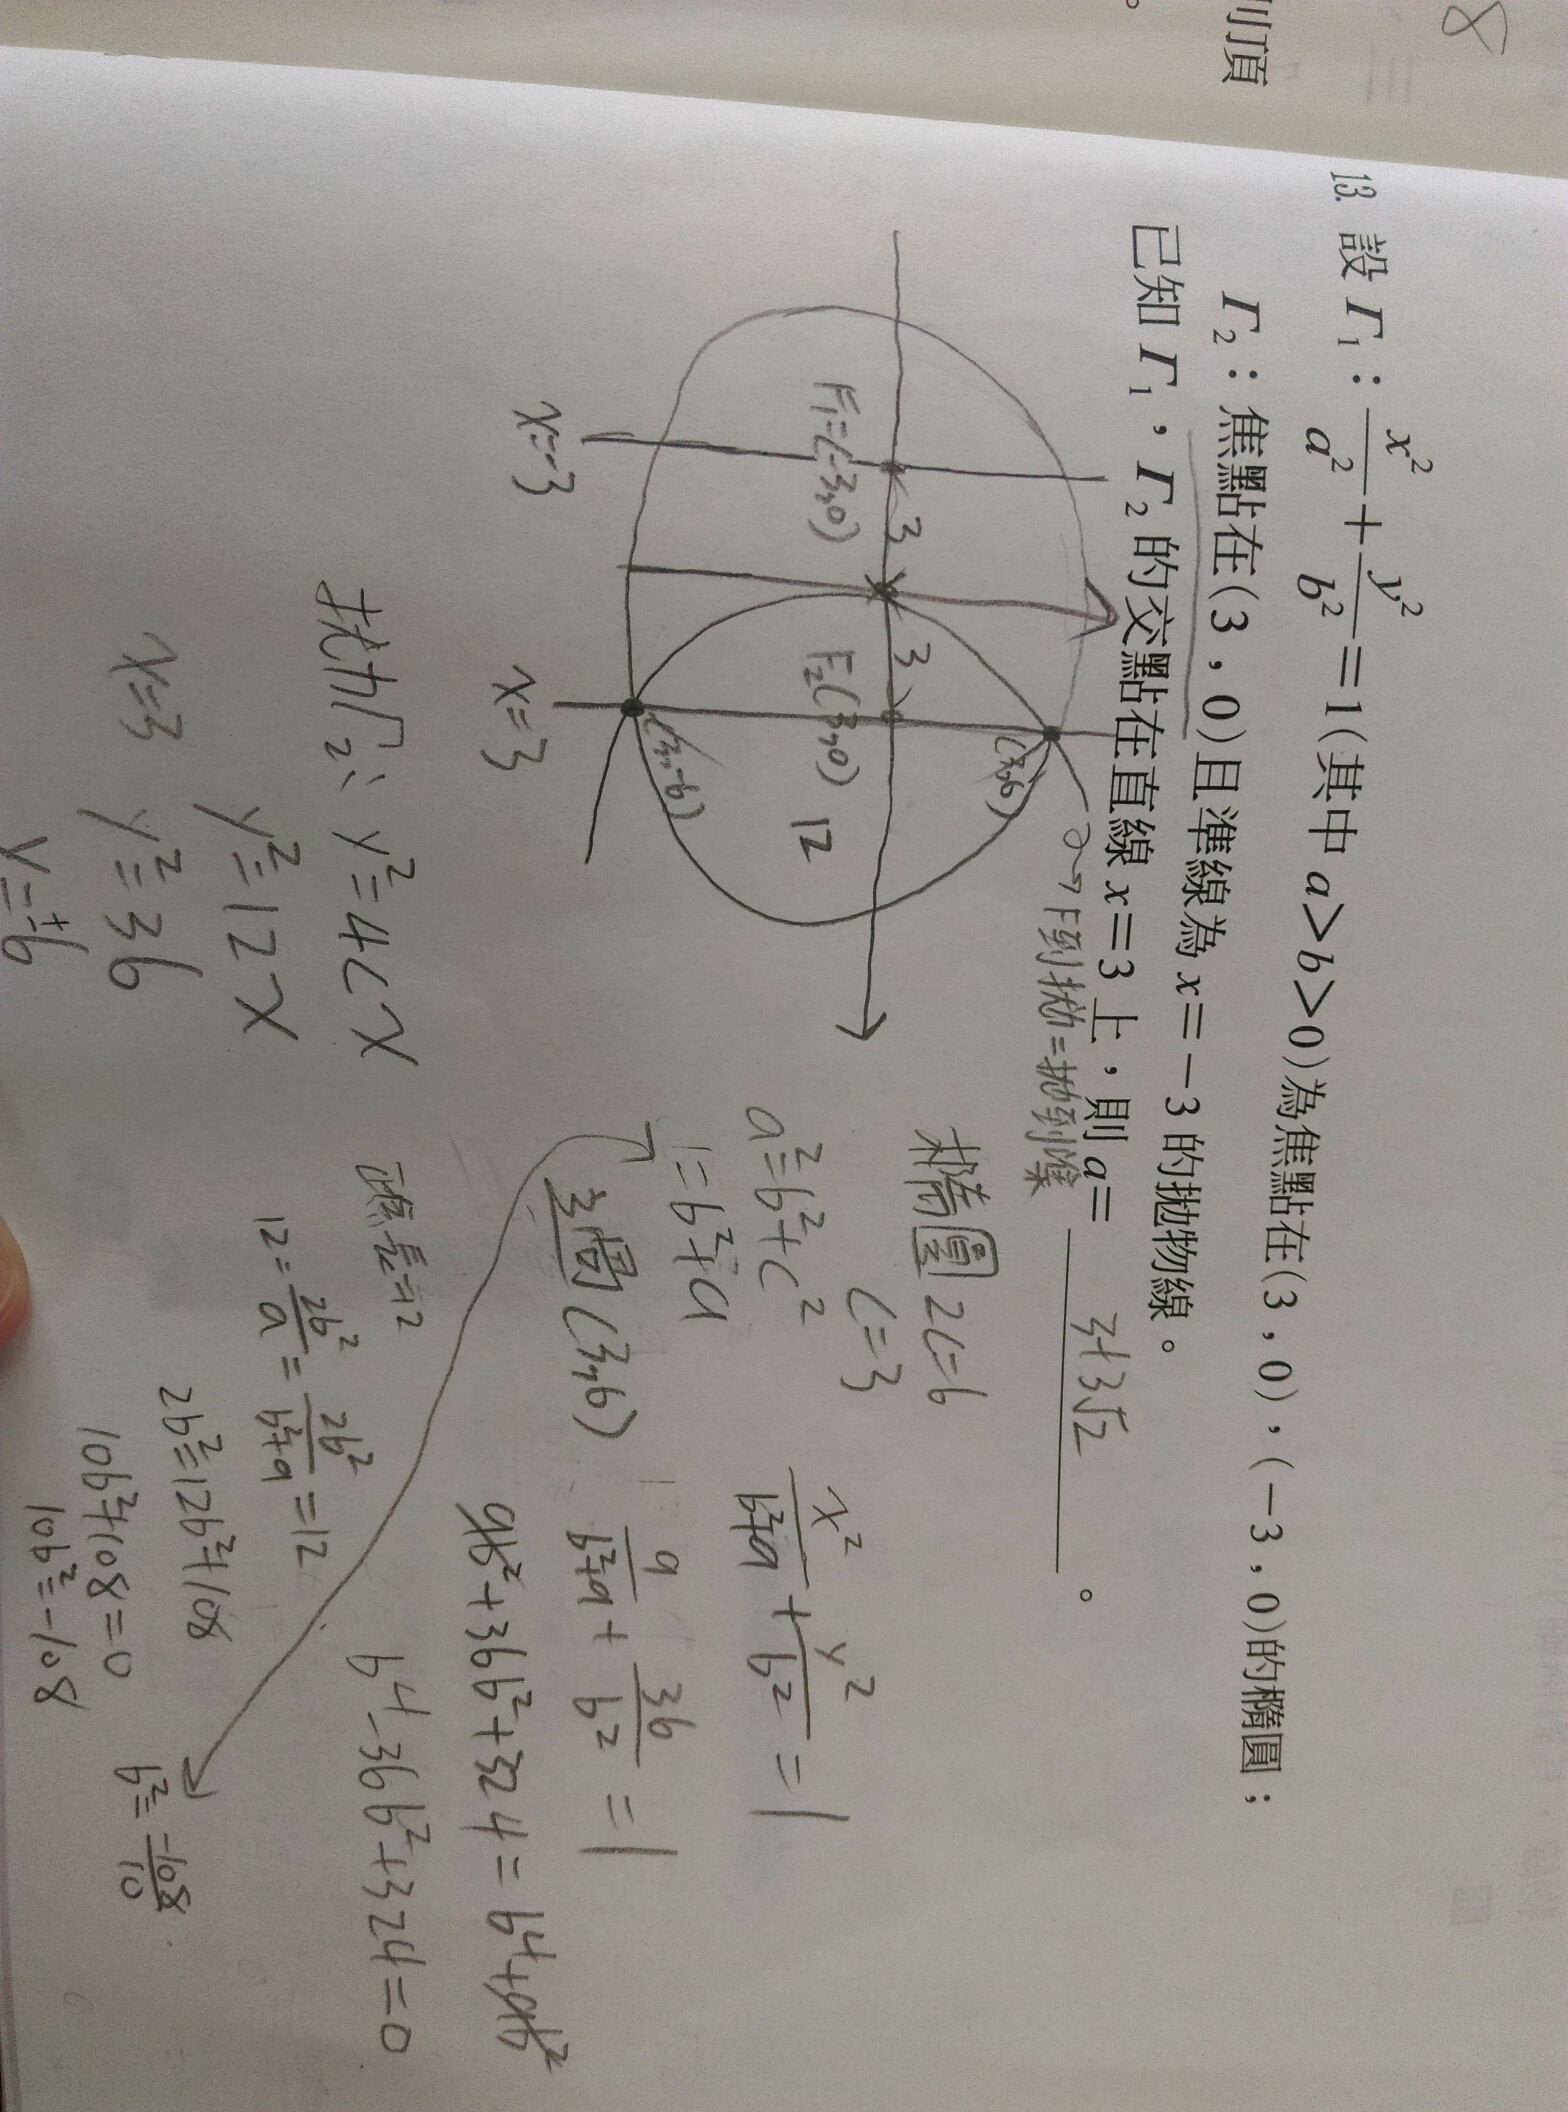 8
列頂
。
13. 設 Γ₁：x²/a² + y²/b² = 1(其中 a＞b＞0)為焦點在(3 , 0)，(－3 , 0)的橢圓；
Γ₂：焦點在(3 , 0)且準線為 x＝－3 的拋物線。
已知 Γ₁，Γ₂ 的交點在直線 x＝3 上，則 a＝ 3+3√2 。
F到拋=拋到準
F₁=(-3,0)
3
3
F₂(3,0)
12
(3,6)
(3,-6)
x=-3
x=3
拋物Γ₂: y²=4cx
y²=12x
x=3 y²=36
y=±6
橢圓 2c=6
c=3
a²=b²+c²
=b²+9
過(3,6)
x²/(b²+9) + y²/b² = 1
9/(b²+9) + 36/b² = 1
9b²+36b²+324=b⁴+9b²
b⁴-36b²+324=0
正焦長=12
12=2b²/a=2b²/(b²+9)=12
2b²=12b²+108
10b²+108=0
10b²=-108
b²=-108/10